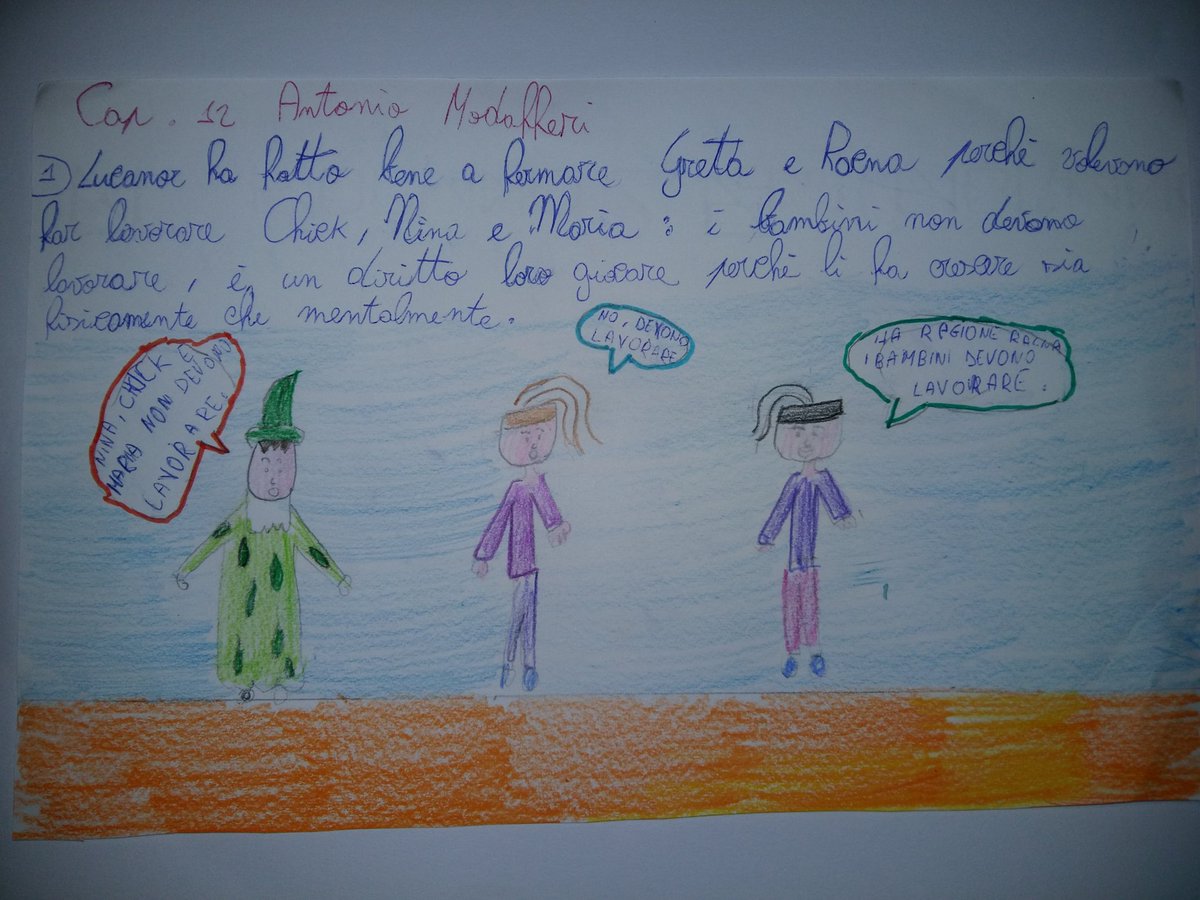 Cap. 12 Antonio Modafferi
1) Lucanor ha fatto bene a fermare Greta e Raena perchè volevono
far lavorare Chick, Nina e Maria : i bambini non devomo
lavorare, è un diritto loro giocare perchè li fa crescere sia
fisicamente che mentalmente.
NINA, CHICK E
MARIA NON DEVONO
LAVORARE.
NO, DEVONO
LAVORARE
HA RAGIONE RAENA
I BAMBINI DEVONO
LAVORARE.